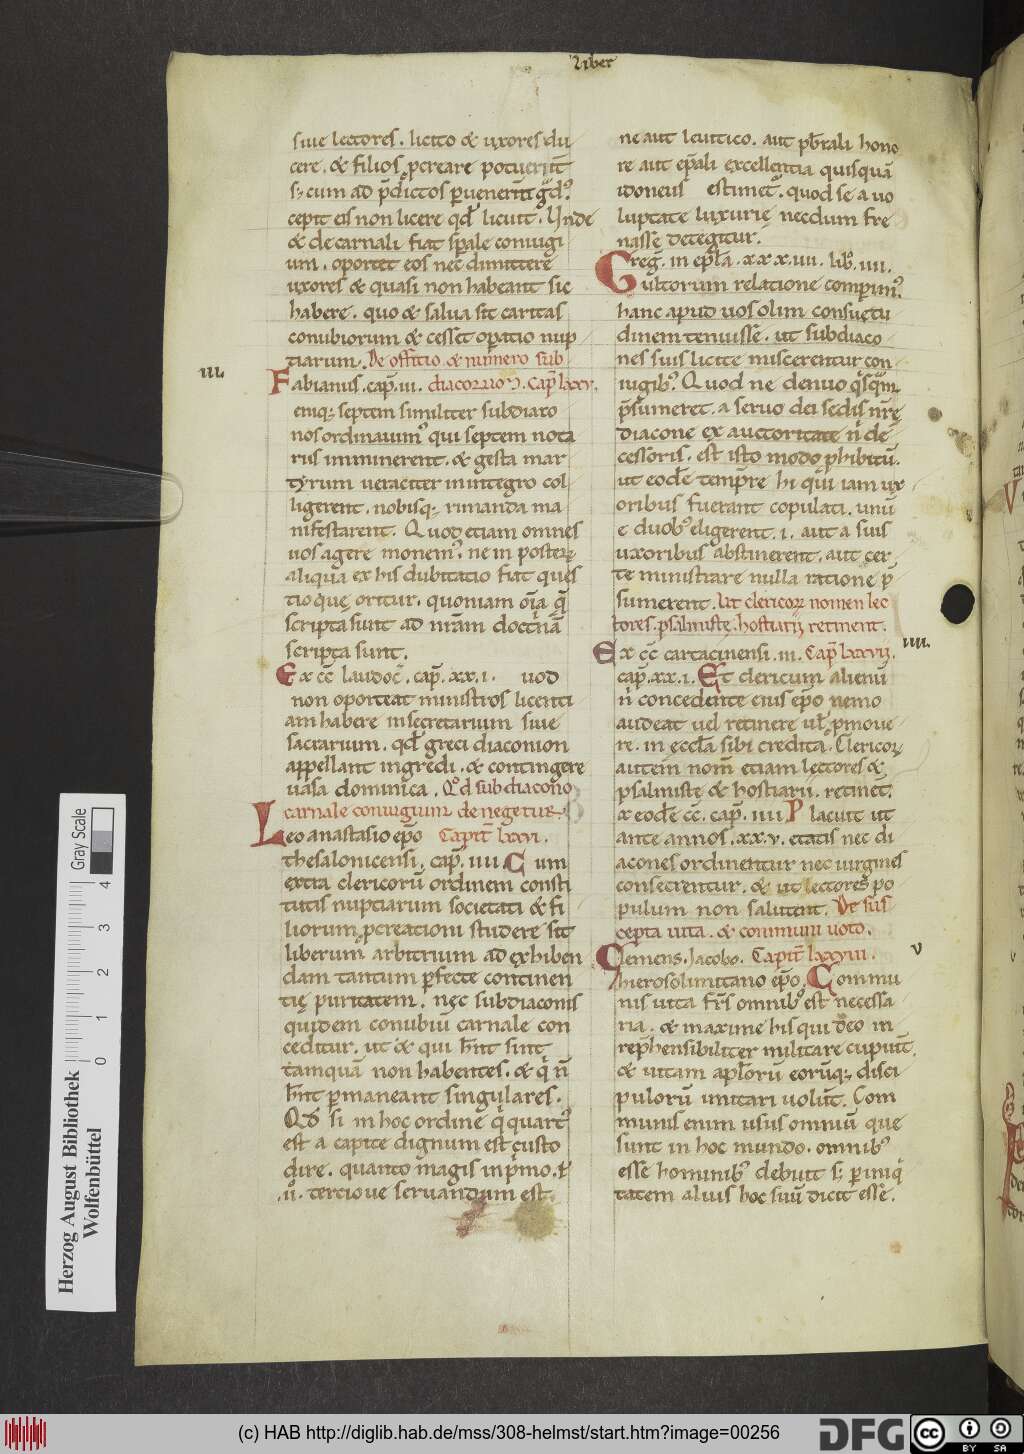 Liber
siue lectores. licito & uxores du
cere. & filios p̱creare potuerunt̄
s; cum ad p̄dictos ꝑuenerint g̃d.
cepit eis non licere qđ licuit. Unde
& de carnali fiat sp̄ale coniugi
um. oportet eos nec dimittere
uxores & quasi non habeant sic
habere. quo & salua sit caritas
conubiorum & cesset oꝑatio nup
tiarum. De offitio & numero sub
iii.
Fabianus. cap̄. iii. diaconuꝫ. Cap̄ lxxv.
emq; septem similiter subdiaco
nos ordinauim᾽ qui septem nota
riis imminerent. & gesta mar
tyrum ueraciter in integro col
ligerent. nobisq; rimanda ma
nifestarent. Quod etiam omnes
uos agere monem᾽. ne in posterꝝ
aliqua ex his dubitatio fiat ques
tio que oritur. quoniam oīa q̄
scripta sunt ad nr̄am doctnā
scripta sunt.
Ex cc̄ laudoc̄. cap̄. xx. i. uod
non oporteat ministros licenti
am habere in secretarium siue
sacrarium. qđ greci diaconion
appellant ingredi. & contingere
uasa dominica. Qd̊ subdiacono
carnale coniugium denegetur.
Leo anastasio ep̄o Capit̄ lxxvi.
thesalonicensi. cap̄. iiii. Cum
extra clericorū ordinem consti
tutis nuptiarum societati & fi
liorum p̱creationi studere sit
liberum arbitrium ad exhiben
dam tantum ꝑfecte continen
tię puritatem. nec subdiaconis
quidem conubiū carnale con
ceditur. ut & qui hn̄t sint
tamquā non habentes. & q̇ n̄
hn̄t ꝑmaneant singulares.
Qđ si in hoc ordine q̇ quart᾽
est a capite dignum est custo
dire. quanto magis in pͥmo. t̄
.ii. terciove seruandum est.
ne aut leuitico. aut pb̄rali hono
re aut ep̄ali excellentia quisquā
idoneus estimet᾽. quod se a uo
luptate luxurie necdum fre
nasse detegitur.
Greg̅. in ep̄la. xxx.iiii. lib̄. iiii.
ultorum relatione comperim᾽.
hanc apud uos olim consuetu
dinem tenuisse. ut subdiaco
nes suis licite miscerentur con
iugib᾽. Quod ne denuo q̇sq̄m
p̄sumeret. a seruo dei sedis nr̄ę
diacone ex auctoritate n̄ de
cessoris. est isto modo p̱hibitū.
ut eodē tempr̄e hi qui iam ux
oribus fuerant copulati. unū
e duob᾽ eligerent. i. aut a suis
uxoribus abstinerent. aut cer
te ministrare nulla ratione p̄
sumerent. Ut clericoꝝ nomen lec
tores. psalmistę. hostiarii retinent.
iiii.
Ex cc̄ cartacinensi. iii. Cap̄ lxxvii.
cap̄. xx. i. Et clericum alienū
n̄ concedente eius ep̄o nemo
audeat uel retinere ul̄ p̱moue
re. in eccl̄a sibi credita. Clericoꝝ
autem nom̄ etiam lectores &
psalmistę & hostiarii. retinet᾽.
x eodē cc̄. cap̄. iiii. Placuit ut
ante annos. xx.v. etatis nec di
acones ordinentur nec uirgines
consecrentur. & ut lectores po
pulum non salutent. De sus
cepta uita. & communi uoto.
v
Clemens. Iacobo. Capit̄ lxxviii.
hierosolimitano ep̄o. Commu
nis uita fr̄s omnib᾽ est necessa
ria. & maxime his qui deo in
repͥhensibiliter militare cupiūt.
& uitam apl̄orū eorūq; disci
pulorū imitari uolūt. Com
munis enim usus omniū que
sunt in hoc mundo. omnib᾽
esse hominib᾽ debuit s; ꝑ iniq̇
tatem alius hoc suū dicit esse.
Gray Scale
0 1 2 3 4
Herzog August Bibliothek
Wolfenbüttel
(c) HAB http://diglib.hab.de/mss/308-helmst/start.htm?image=00256
DFG
cc BY SA